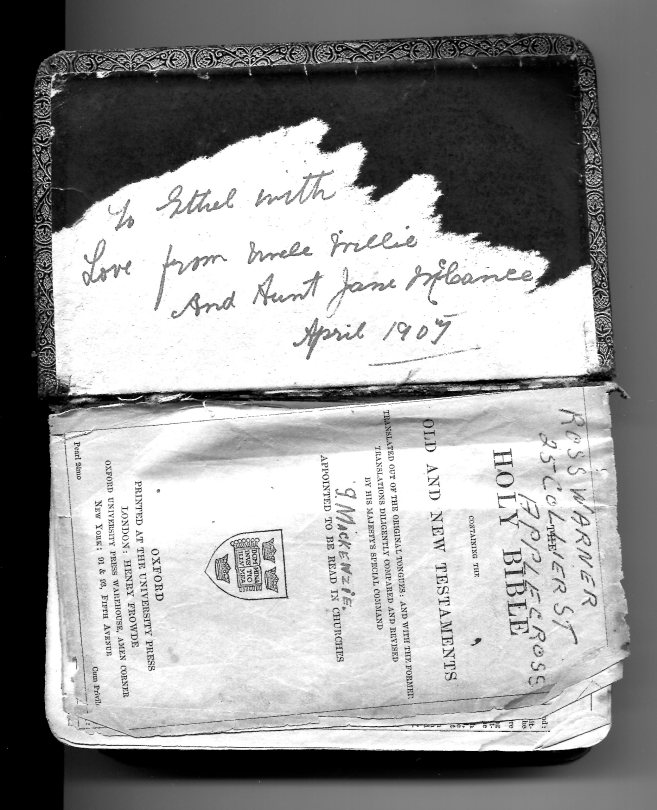 To Ethel with
Love from Uncle Willie
And Aunt Jane McCance
April 1907
ROSS WARNER
25 COLLIER ST
APPLECROSS
THE
HOLY BIBLE
CONTAINING THE
OLD AND NEW TESTAMENTS
TRANSLATED OUT OF THE ORIGINAL TONGUES: AND WITH THE FORMER
TRANSLATIONS DILIGENTLY COMPARED AND REVISED
BY HIS MAJESTY'S SPECIAL COMMAND
G. MACKENZIE.
APPOINTED TO BE READ IN CHURCHES
DOMINUS ILLUMINATIO MEA
OXFORD
PRINTED AT THE UNIVERSITY PRESS
LONDON: HENRY FROWDE
OXFORD UNIVERSITY PRESS WAREHOUSE, AMEN CORNER
NEW YORK: 91 & 93, FIFTH AVENUE
Pearl 24mo
Cum Privile